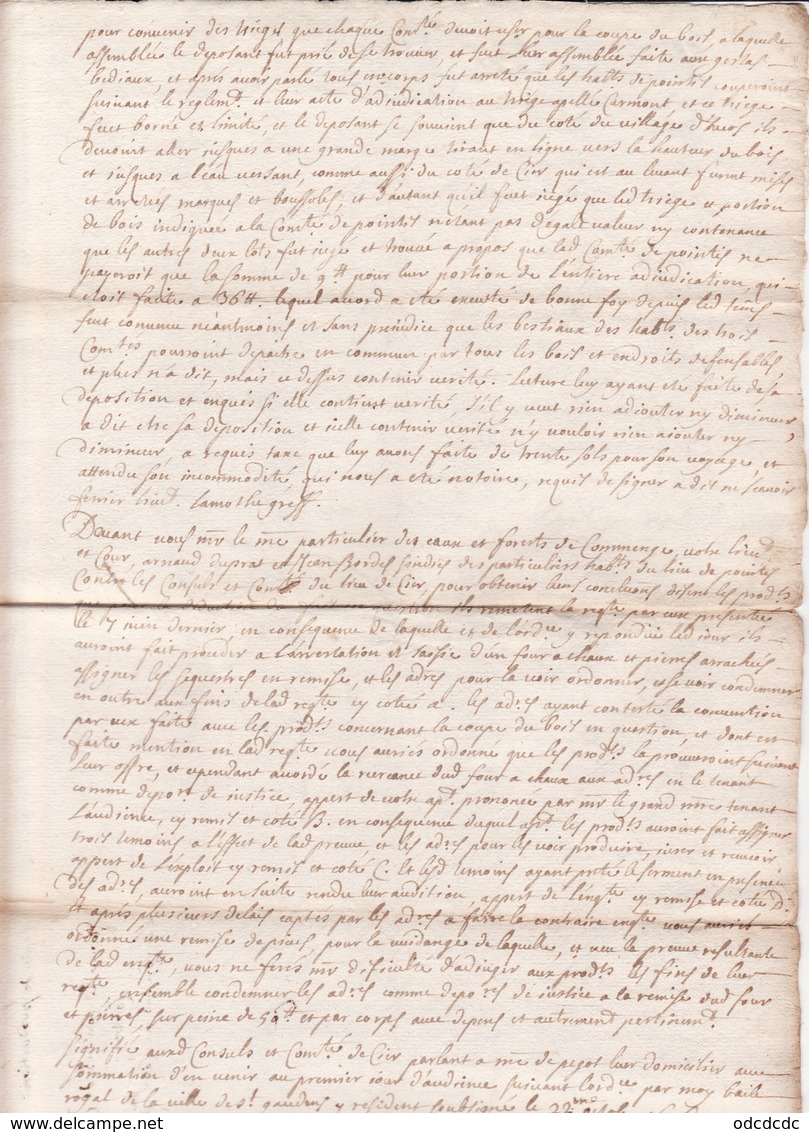 pour convenir des triages que chaque Com.té devoit user pour la coupe du bois, a laquelle
assemblée le deposant fut prié de se trouver, et fut lad assemblée faite aux
et apres avoir parlé tous en corps fut arreté que les habts de pointis couperoint
suivant le reglemt et leur acte d'adjudication au triege apellé Carmont et ce triege
fuct borné et limité, et le deposant se souvient que du coté du village d'huos ils
devoint aller jusques a une grande marque tirant en ligne vers la hauteur du bois
et jusques a l'eau versant, comme aussi du coté de Cier qui est au levant furent mises
et arretées marques et boussoles, et d'autant qu'il fuct jugé que led triege et portion
de bois indiquée a la Comté de pointis n'etant pas d'egale valeur ny contenance
que les autres deux lots fut jugé et trouvé a propos que lad Comté de pointis ne
payeroit que la somme de 9tt pour leur portion de l'entiere adjudication, qui
etoit faite a 36tt lequel acord a eté executé de bonne foy depuis led tems
fuct convenu néantmoins et sans prejudice que les bestiaux des habts des trois
Comtés pourroint depaitre en commun par tous les bois et endroits defensables,
et plus n'a dit, mais ce dessus contenir verité. Lecture luy ayant eté faite de sa
deposition et enquis si elle contient verité, s'il y veut rien adjouter ny diminuer,
a dit etre sa deposition et icelle contenir verité n'y vouloir rien ajouter ny
diminuer, a requis taxe que luy avons faite de trente sols pour son voyage, et
attendu son incommodité qui nous a eté notoire, requis de signer a dit ne scavoir
lieut. Lamothe greff.
Devant vous mr le me particulier des eaux et forets de Commenge, votre lieut
et Cour, arnaud dupras et Jean Bordes sindics des particuliers habts du lieu de pointis
Contre les Consuls et Comté du lieu de Cier, pour obtenir leurs conclusions disent les prodts
ils remettent la reqte par eux presentée
le 7 juin dernier en consequence de laquelle et de l'ordce y repondüe led jour ils
auroint fait proceder a l'arrestation et saisie d'un four a chaux et pierres arrachées
assigner les sequestres en remise, et les adres pour la voir ordonner, et se voir condamner
en outre aux fins de lad reqte cy coté a. les adres ayant contesté la convention
par eux faite avec les prodts concernant la coupe du bois en question, et dont est
faite mention en lad reqte vous auriés ordonné que les prodts la prouveroint suivant
leur offre, et cependant acordé la recreance dud four a chaux aux adres en le tenant
comme depore de justice, appert de votre apt prononcée par mr le grand me tenant
l'audience, cy remis et coté B. en consequence duquel apt. les prodts auroint fait assigner
trois temoins a l'effet de lad preuve et les adres pour les voir produire, jurer et recevoir
appert de l'exploit cy remis et coté C. et lesd temoins ayant preté le serment en presence
des adres, auroint en suite rendu leur audition, appert de l'enqte cy remise et cotée D.
et apres plusieurs delais captés par les adres a faire la contraire enqte vous auriés
ordonné une remise de pieces, pour la vuidange de laquelle, et veu la preuve resultante
de lad enqte, vous ne ferés mr dificulté d'adjuger aux prodts les fins de leur
reqte, ensemble condemner les adres comme depores de justice a la remise dud four
et pierres, sur peine de 50tt et par corps avec depens et autrement pertinemt.
Signifié auxd Consuls et Comté de Cier parlant a me de pegot leur domicilier avec
sommation d'en venir au premier jour d'audience suivant l'ordce par moy baile
royal de la ville de st gaudens y resident soubsigné le